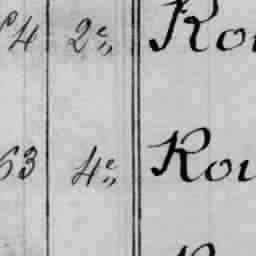 4 2e,, Rou
63 4e,, Rou